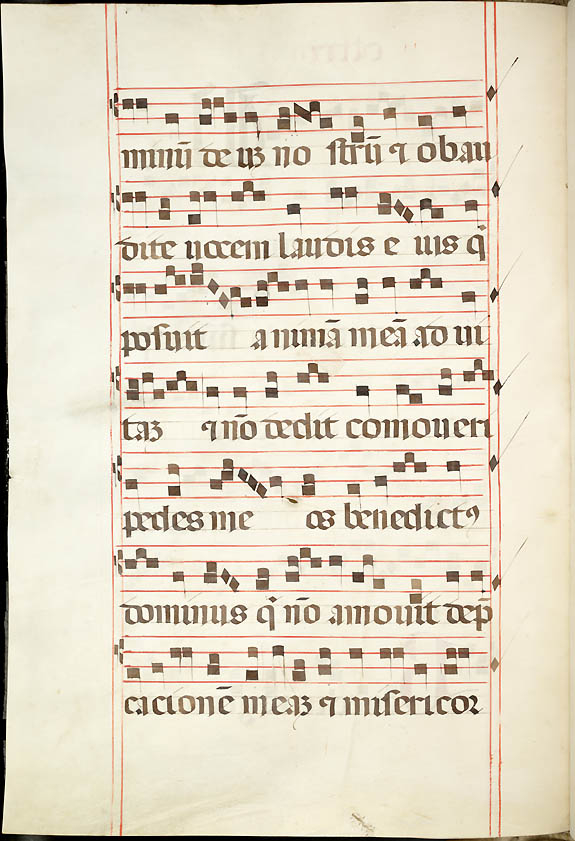 minū deuȝ nostrū ⁊ obau
dite uocem laudis eius q̄
posuit animā meā ad ui
taȝ ⁊ nō dedit comoueri
pedes meos benedictꝰ
dominus q̄ nō amouit dep̄
cacionē meaȝ ⁊ misericor